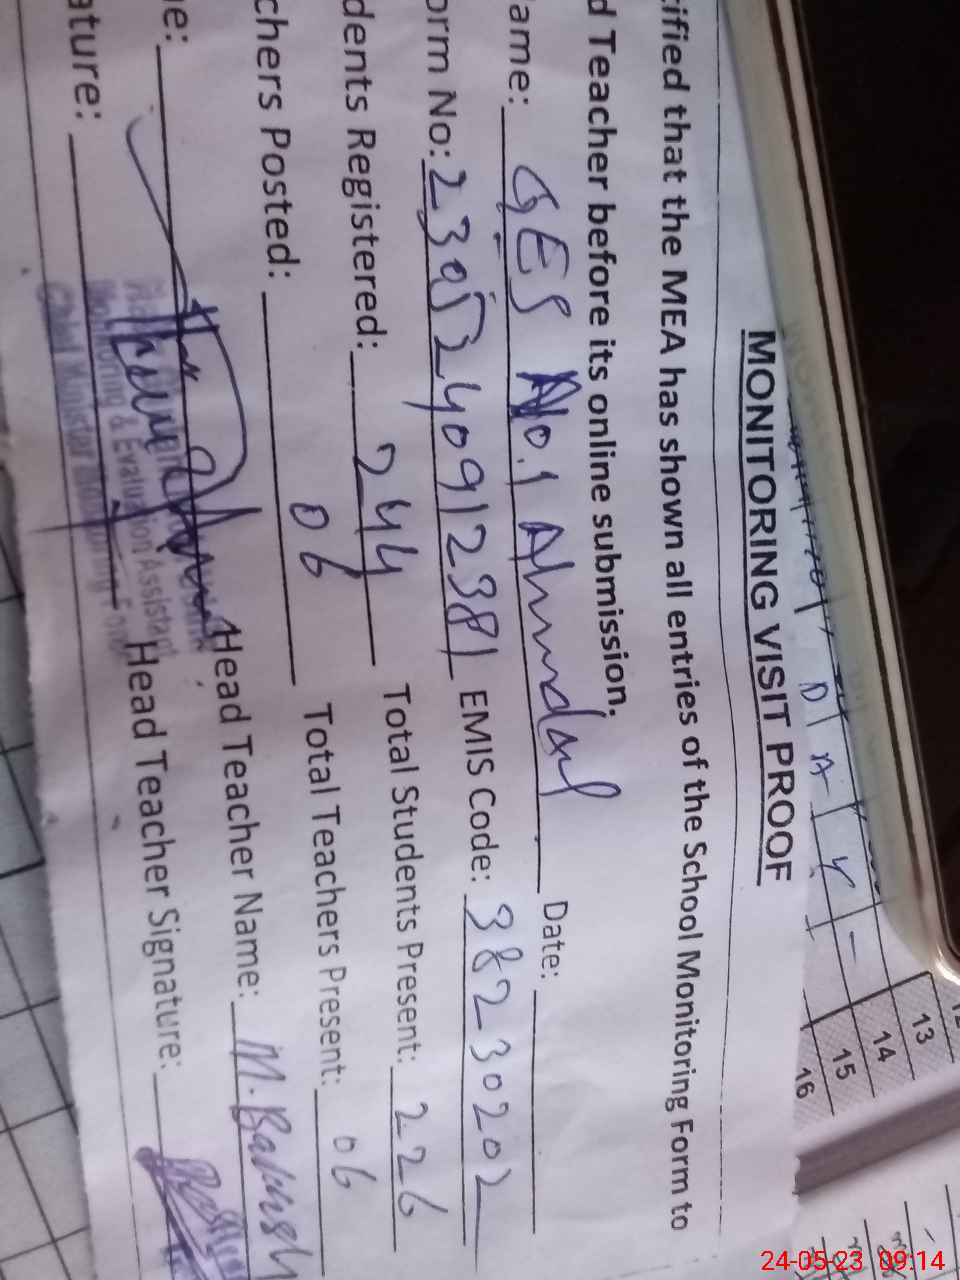 MONITORING VISIT PROOF
ified that the MEA has shown all entries of the School Monitoring Form to
d Teacher before its online submission.
ame: GES No.1 Ahmdal Date:
orm No: 230524091238 EMIS Code: 38230202
dents Registered: 244 Total Students Present: 226
chers Posted: 06 Total Teachers Present: 06
e: Head Teacher Name: M. Bakhsh
ature: Head Teacher Signature:
Monitoring & Evaluation Assistant
Chief Minister Monitoring Force
D A Y
13
14
15
16
24-05-23 09:14